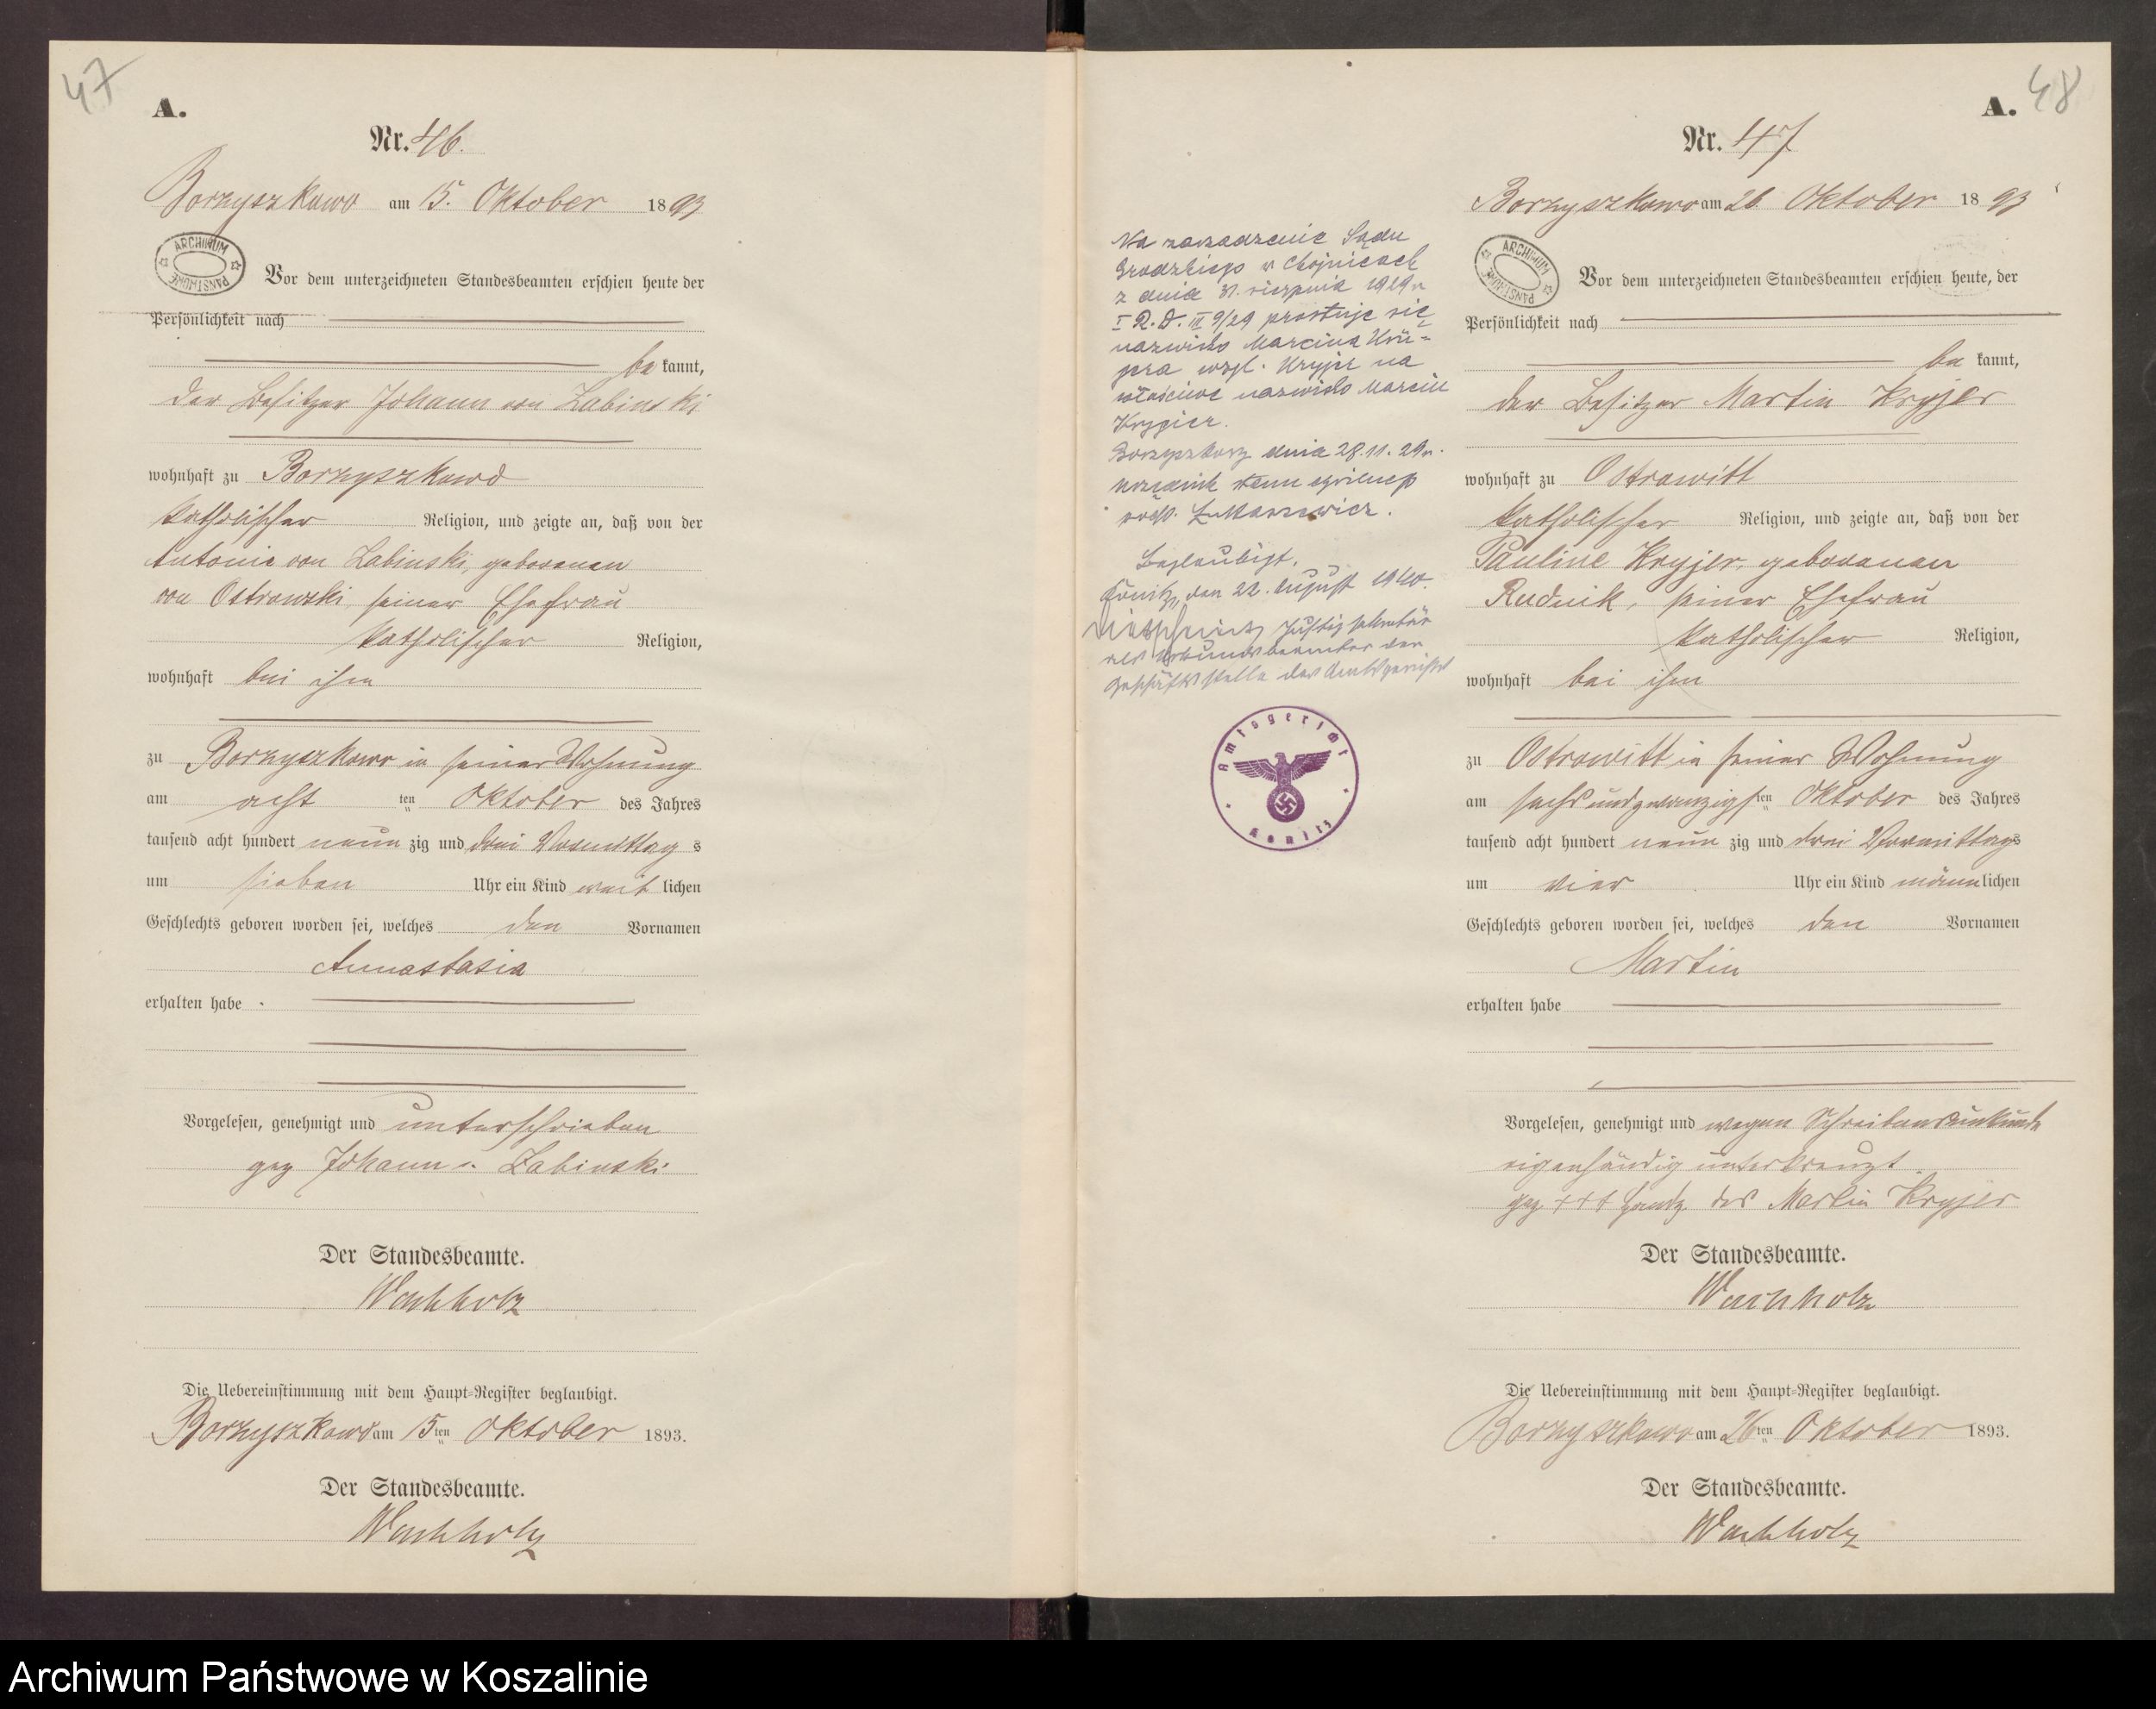 47
A.
Nr. 46.
Borzyszkowo am 15. Oktober 1893
ARCHIWUM PAŃSTWOWE
Vor dem unterzeichneten Standesbeamten erschien heute der
Persönlichkeit nach
be kannt,
der Besitzer Johann von Zabinski
wohnhaft zu Borzyszkowo
katholischer Religion, und zeigte an, daß von der
Antonie von Zabinski, geborenen
von Ostrowski, seiner Ehefrau
katholischer Religion,
wohnhaft bei ihm
zu Borzyszkowo in seiner Wohnung
am acht ten Oktober des Jahres
tausend acht hundert neun zig und drei Vormittag s
um sieben Uhr ein Kind weib lichen
Geschlechts geboren worden sei, welches den Vornamen
Annastasia
erhalten habe
Vorgelesen, genehmigt und unterschrieben
gez Johann v. Zabinski
Der Standesbeamte.
Wachholz
Die Uebereinstimmung mit dem Haupt-Register beglaubigt.
Borzyszkowo am 15ten Oktober 1893.
Der Standesbeamte.
Wachholz
48
A.
Nr. 47
Borzyszkowo am 26 Oktober 1893
ARCHIWUM PAŃSTWOWE
Vor dem unterzeichneten Standesbeamten erschien heute, der
Persönlichkeit nach
be kannt,
der Besitzer Martin Kryjer
wohnhaft zu Ostrowitt
katholischer Religion, und zeigte an, daß von der
Pauline Kryjer, geborenen
Rudnik, seiner Ehefrau
katholischer Religion,
wohnhaft bei ihm
zu Ostrowitt in seiner Wohnung
am sechsundzwanzigsten Oktober des Jahres
tausend acht hundert neun zig und drei Vormittags
um vier Uhr ein Kind männlichen
Geschlechts geboren worden sei, welches den Vornamen
Martin
erhalten habe
Vorgelesen, genehmigt und wegen Schreibensunkunde
eigenhändig unterkreuzt.
gez +++ Handz. des Martin Kryjer
Der Standesbeamte.
Wachholz
Die Uebereinstimmung mit dem Haupt-Register beglaubigt.
Borzyszkowo am 26ten Oktober 1893.
Der Standesbeamte.
Wachholz
Na zarządzenie Sądu
Grodzkiego w Chojnicach
z dnia 31. sierpnia 1929 r.
I R. D. III 9/29 prostuje się
nazwisko Marcina Krü-
gra wzgl. Kryjer na
właściwe nazwisko Marcin
Krygier.
Borzyszkowy dnia 28.11.29 r.
Urzędnik stanu cywilnego
Beglaubigt.
Konitz, den 22. August 1940.
Justizsekretär
als Urkundsbeamter der
Geschäftsstelle des Amtsgerichts
Amtsgericht Konitz
Archiwum Państwowe w Koszalinie